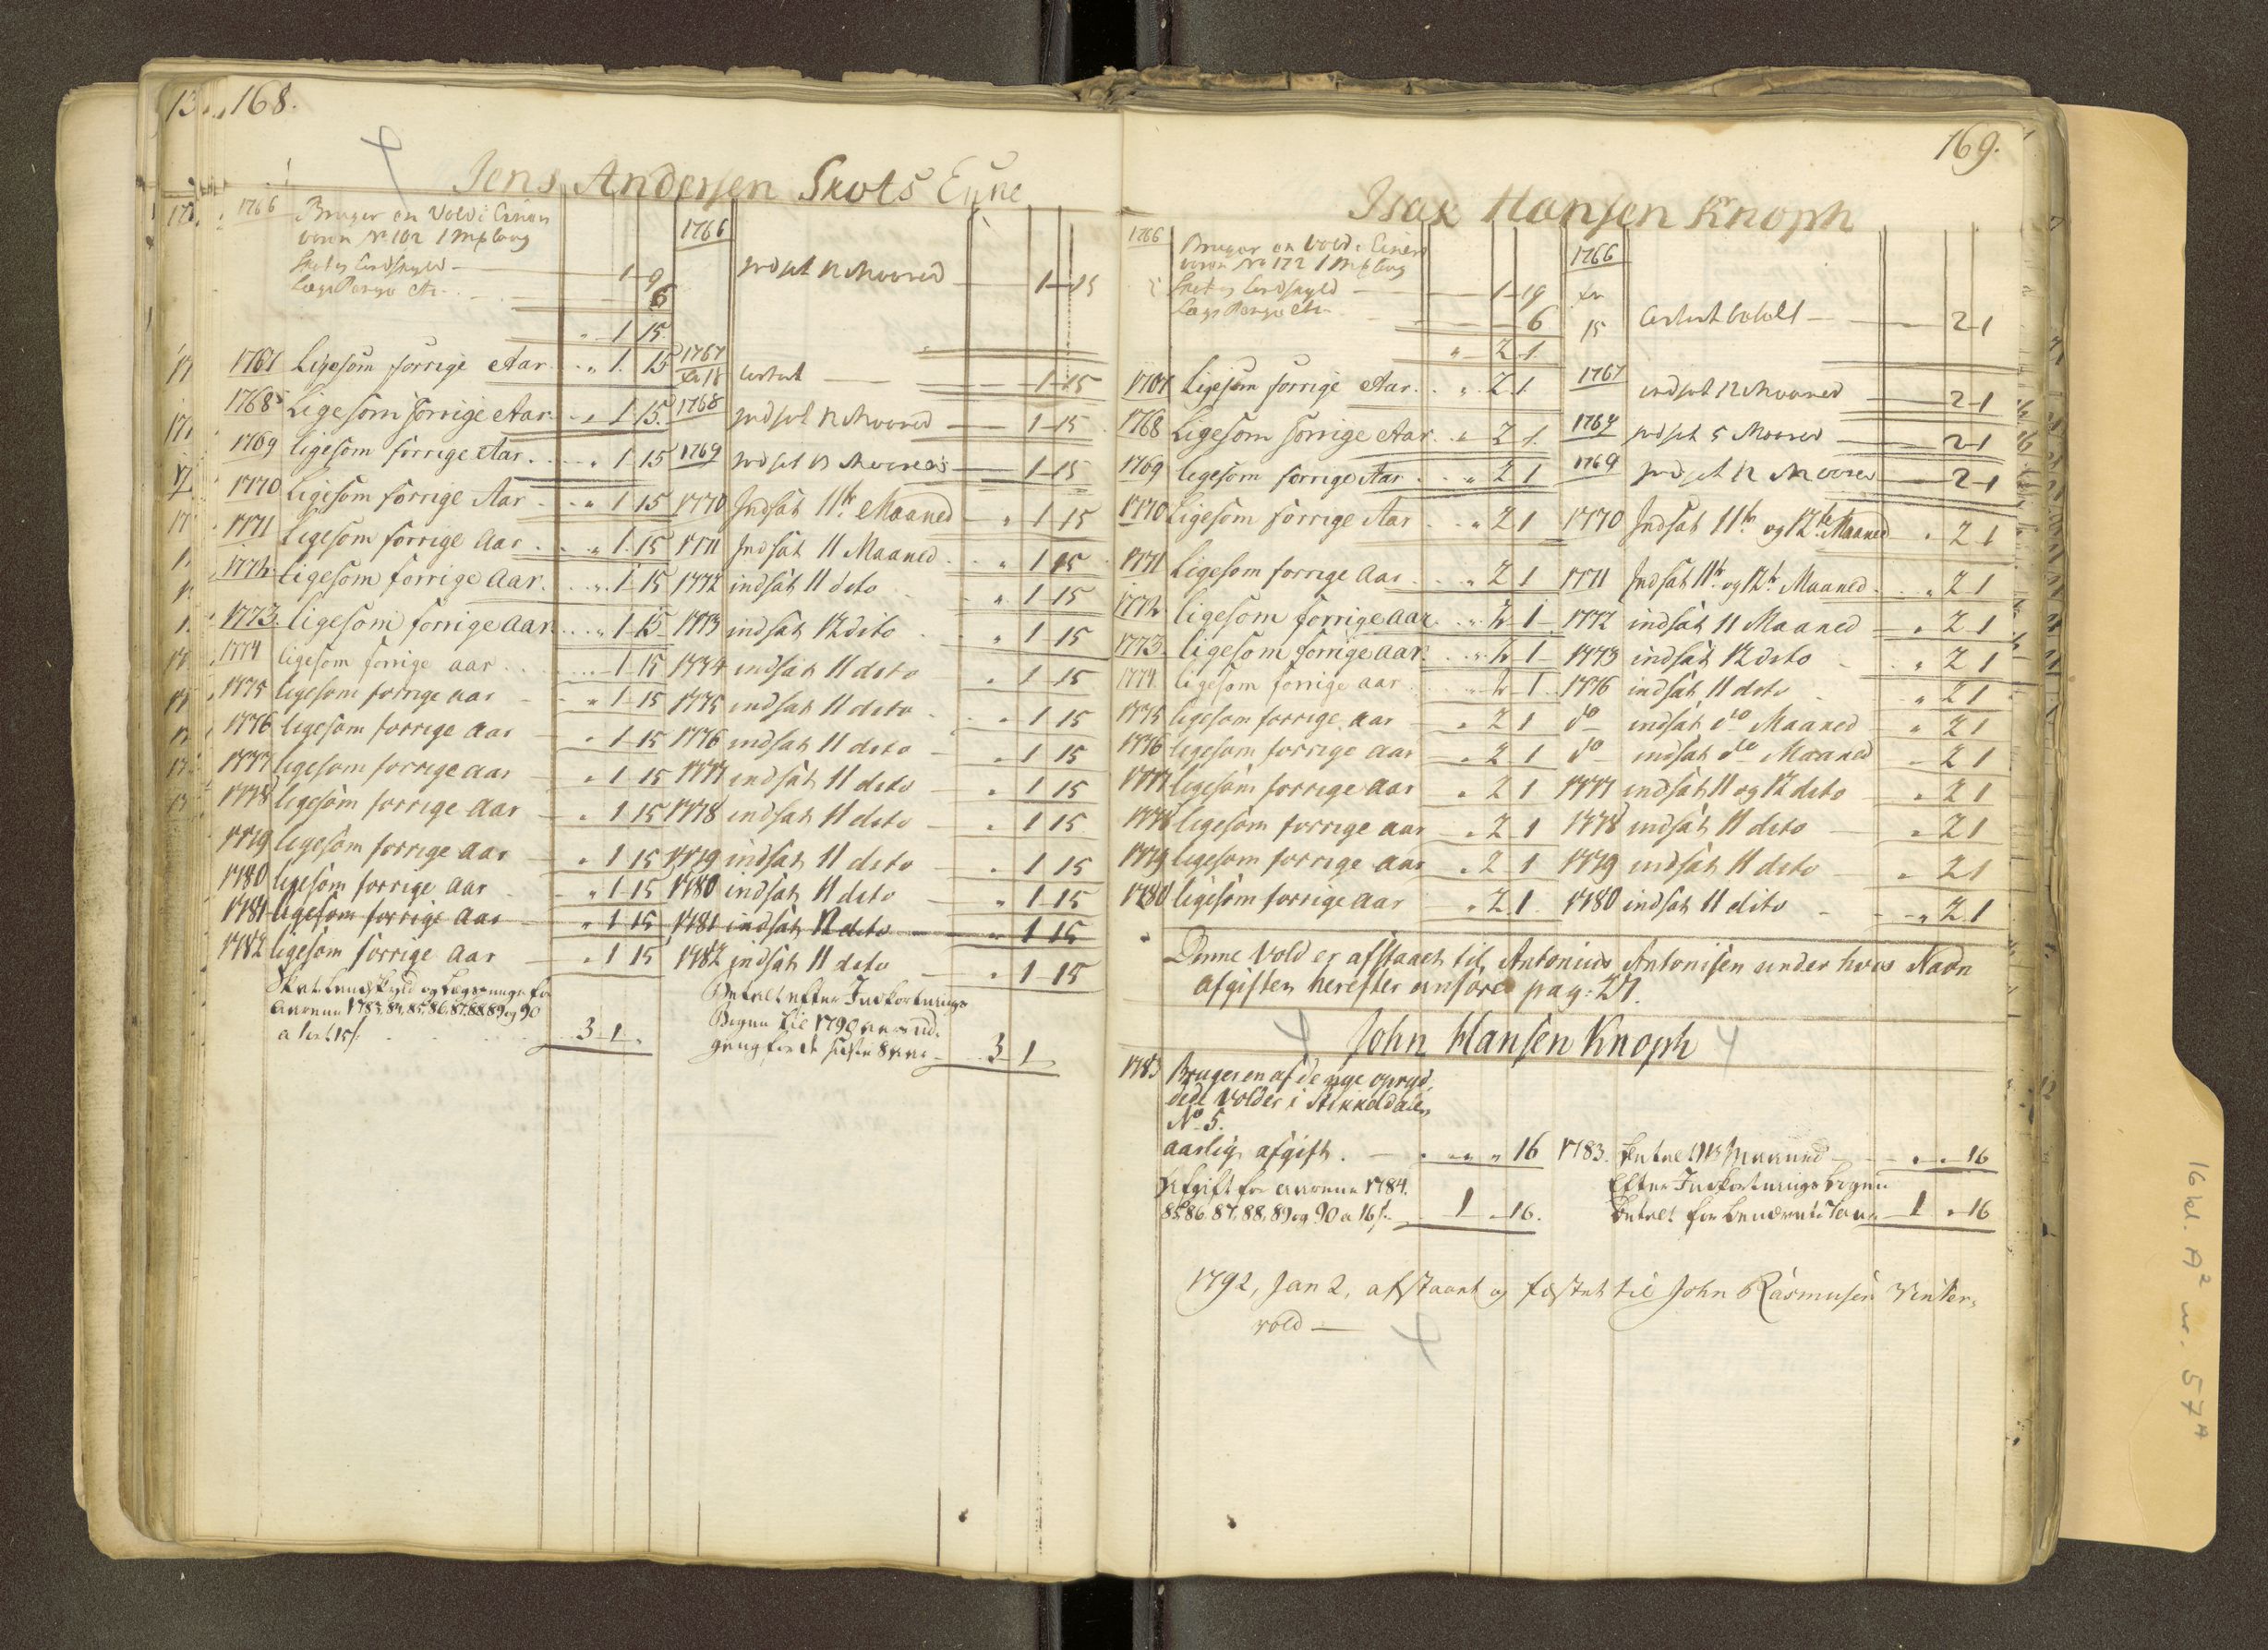 168.
Jens Andersen Skots Enke
1766 Bruger en Vold i
No 102
1 9
6
" 1 15.
1766
indsat 12 Maaned 1 15
1767 Ligesom forrige Aar " 1. 15 1767 1 15
1768 Ligesom forrige Aar " 1 15. 1768 indsat 12 Maaned 1 15
1769 ligesom forrige Aar " 1 15 1769 indsat Maaned 1 15
1770 Ligesom forrige Aar " 1 15 1770 Indsat 11te Maaned " 1 15
1771 Ligesom forrige Aar " 1 15 1771 Indsat 11 Maaned " 1 15
1772 Ligesom forrige Aar. " 1 15 1772 indsat 11 dito " 1 15
1773. ligesom forrige aar " 1 15 1773 indsat 12 dito " 1 15
1774 ligesom forrige aar 1 15 1774 indsat 11 dito " 1 15
1775 ligesom forrige aar " 1 15 1775 indsat 11 dito " 1 15
1776 ligesom forrige aar " 1 15 1776 indsat 11 dito " 1 15
1777 ligesom forrige aar " 1 15 1777 indsat 11 dito " 1 15
1778 ligesom forrige aar " 1 15 1778 indsat 11 dito " 1 15
1779 ligesom forrige aar " 1 15 1779 indsat 11 dito " 1 15
1780 ligesom forrige aar " 1 15 1780 indsat 11 dito " 1 15
1781 ligesom forrige aar " 1 15 1781 indsat 12 dito " 1 15
1782 ligesom forrige aar " 1 15 1782 indsat 11 dito " 1 15
Skat Landskyld og Lægspenge for
Aarene 1783, 84, 85, 86, 87, 88, 89 og 90
a 1 ort 15 s. 3 1.
Betalt efter Indkortnings
Bogen til 1790 aars ud-
gang for de sidste 8 aar 3 1
169.
Isax Hansen Knoph
1766 Bruger en Vold i
No 172
1 19
6
" 2 1
1766
15 betalt 2 1
1767 Ligesom forrige Aar. " 2 1 1767 indsat 12 Maaned 2 1
1768 Ligesom forrige Aar " 2 1. indsat 5 Maaned 2 1
1769 ligesom forrige Aar " 2 1 1769 indsat 12 Maaned 2 1
1770 Ligesom forrige Aar " 2 1 1770 Indsat 11te og 12te Maaned " 2 1
1771 Ligesom forrige Aar " 2 1 1771 Indsat 11te og 12te Maaned " 2 1
1772 ligesom forrige Aar " 2 1 1772 indsat 11 Maaned " 2 1
1773. ligesom forrige aar. " 2 1 1773 indsat 12 dito " 2 1
1774 ligesom forrige aar " 2 1. 1776 indsat 11 dito " 2 1
1775 ligesom forrige aar " 2 1 do indsat dto Maaned " 2 1
1776 ligesom forrige aar " 2 1 do indsat dto Maaned " 2 1
1777 ligesom forrige aar " 2 1 1777 indsat 11 og 12 dito " 2 1
1778 ligesom forrige aar " 2 1 1778 indsat 11 dito " 2 1
1779 ligesom forrige aar " 2 1 1779 indsat 11 dito " 2 1
1780 ligesom forrige aar " 2 1. 1780 indsat 11 dito " 2 1
Denne Vold er afstaaet til Antonius Antonisen under hvis Navn
afgiften herefter anføres pag: 27.
John Hansen Knoph
1783 Bruger en af de nye opryd-
dede Volder i Stikkeldalen
No 5.
aarlig afgift. " " 16 1783. betalt Maaned " " 16
Afgift for Aarene 1784.
85, 86, 87, 88, 89 og 90 a 16 s. 1 " 16.
Efter Indkortnings bogen
betalt for benævnte 7 aar 1 " 16
1792, Jan 2, afstaaet og fæstet til John Rasmusen Vinter-
vold
16 kl. A² nr. 57A